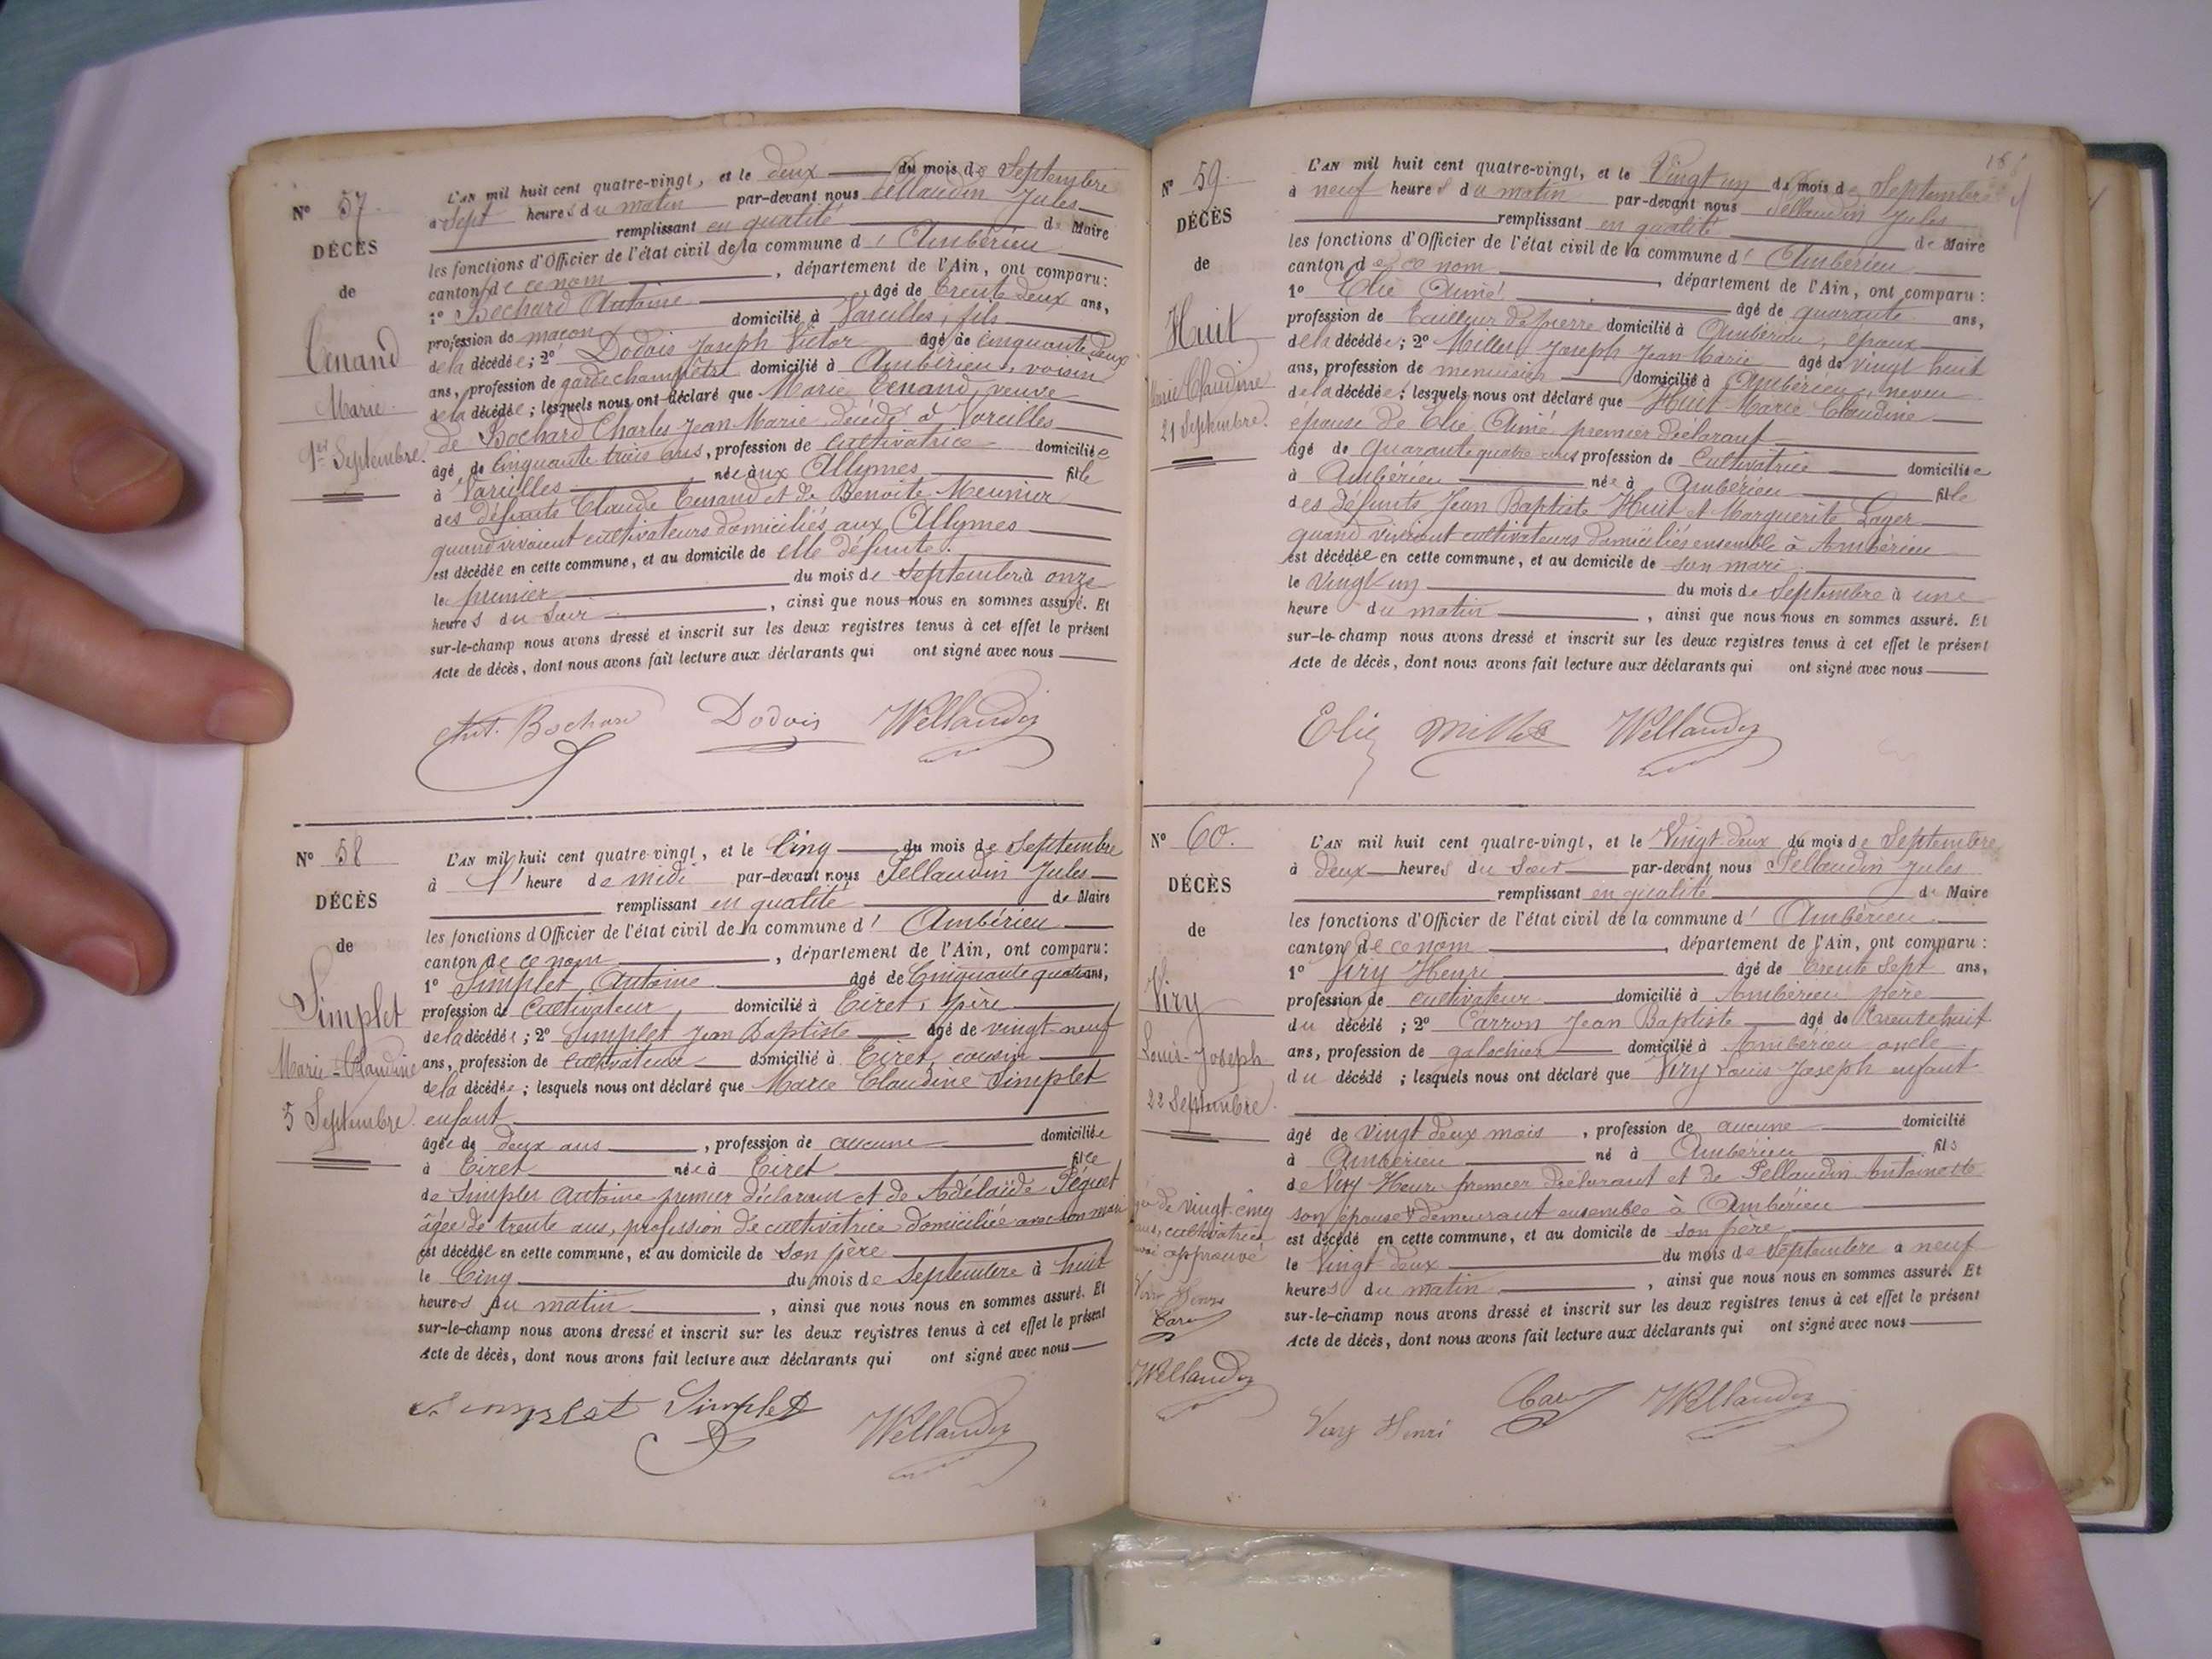 N° 57
DÉCÈS
de
Tenand
Marie
1er Septembre.
L'AN mil huit cent quatre-vingt, et le deux du mois de Septembre
à sept heures du matin par-devant nous Pellaudin Jules
remplissant en qualité de Maire
les fonctions d'Officier de l'état civil de la commune d' Ambérieu
canton de ce nom, département de l'Ain, ont comparu :
1° Bochard Antoine, âgé de trente deux ans,
profession de maçon domicilié à Vareilles, fils
de la décédée ; 2° Dodois Joseph Victor âgé de cinquante deux
ans, profession de garde champêtre domicilié à Ambérieu, voisin
de la décédée ; lesquels nous ont déclaré que Marie Tenand, veuve
de Bochard Charles Jean Marie décédé à Vareilles
âgé de Cinquante trois ans, profession de cultivatrice domiciliée
à Vareilles née aux Allymes fille
des défunts Claude Tenand et de Benoite Meunier
quand vivaient cultivateurs domiciliés aux Allymes
est décédée en cette commune, et au domicile de elle défunte.
le premier du mois de Septembre à onze
heures du soir, ainsi que nous nous en sommes assuré. Et
sur-le-champ nous avons dressé et inscrit sur les deux registres tenus à cet effet le présent
Acte de décès, dont nous avons fait lecture aux déclarants qui ont signé avec nous
Ant. Bochard Dodois Pellaudin
N° 58
DÉCÈS
de
Simplet
Marie-Claudine
5 Septembre.
L'AN mil huit cent quatre-vingt, et le Cinq du mois de Septembre
à 1' heure de midi par-devant nous Pellaudin Jules
remplissant en qualité de Maire
les fonctions d'Officier de l'état civil de la commune d' Ambérieu
canton de ce nom, département de l'Ain, ont comparu :
1° Simplet Antoine âgé de Cinquante quatre ans,
profession de Cultivateur domicilié à Tiret, père
de la décédée ; 2° Simplet Jean Baptiste âgé de vingt-neuf
ans, profession de cultivateur domicilié à Tiret, cousin
de la décédée ; lesquels nous ont déclaré que Marie Claudine Simplet
enfant
âgée de deux ans, profession de aucune domiciliée
à Tiret née à Tiret fille
de Simplet Antoine premier déclarant et de Adélaïde Péguet
âgée de trente ans, profession de cultivatrice domiciliée avec son mari
est décédée en cette commune, et au domicile de son père
le Cinq du mois de Septembre à huit
heures du matin, ainsi que nous nous en sommes assuré. Et
sur-le-champ nous avons dressé et inscrit sur les deux registres tenus à cet effet le présent
Acte de décès, dont nous avons fait lecture aux déclarants qui ont signé avec nous
Simplet Simplet Pellaudin
N° 59
DÉCÈS
de
Huit
Marie Claudine
21 Septembre.
L'AN mil huit cent quatre-vingt, et le Vingt un du mois de Septembre
à neuf heures du matin par-devant nous Pellaudin Jules
remplissant en qualité de Maire
les fonctions d'Officier de l'état civil de la commune d' Ambérieu
canton de ce nom, département de l'Ain, ont comparu :
1° Elie Aimé âgé de quarante ans,
profession de Tailleur de pierre domicilié à Ambérieu, époux
de la décédée ; 2° Millet Joseph Jean Marie âgé de vingt huit
ans, profession de menuisier domicilié à Ambérieu, neveu
de la décédée ; lesquels nous ont déclaré que Huit Marie Claudine
épouse de Elie Aimé premier déclarant
âgé de quarante quatre ans profession de Cultivatrice domiciliée
à Ambérieu née à Ambérieu fille
des défunts Jean Baptiste Huit et Marguerite Lager
quand vivaient cultivateurs domiciliés ensemble à Ambérieu
est décédée en cette commune, et au domicile de son mari
le Vingt un du mois de Septembre à une
heure du matin, ainsi que nous nous en sommes assuré. Et
sur-le-champ nous avons dressé et inscrit sur les deux registres tenus à cet effet le présent
Acte de décès, dont nous avons fait lecture aux déclarants qui ont signé avec nous
Elie Millet Pellaudin
N° 60.
DÉCÈS
de
Viry
Louis-Joseph
22 Septembre.
L'AN mil huit cent quatre-vingt, et le Vingt-deux du mois de Septembre
à deux heures du soir par-devant nous Pellaudin Jules
remplissant en qualité de Maire
les fonctions d'Officier de l'état civil de la commune d' Ambérieu.
canton de ce nom, département de l'Ain, ont comparu :
1° Viry Henri âgé de trente sept ans,
profession de cultivateur domicilié à Ambérieu père
du décédé ; 2° Carron Jean Baptiste âgé de trente huit
ans, profession de galochier domicilié à Ambérieu oncle
du décédé ; lesquels nous ont déclaré que Viry Louis Joseph enfant
âgé de vingt deux mois, profession de aucune domicilié
à Ambérieu né à Ambérieu fils
de Viry Henri premier déclarant et de Pellaudin Antoinette
son épouse demeurant ensemble à Ambérieu
est décédé en cette commune, et au domicile de son père
le Vingt-deux du mois de Septembre à neuf
heures du matin, ainsi que nous nous en sommes assuré. Et
sur-le-champ nous avons dressé et inscrit sur les deux registres tenus à cet effet le présent
Acte de décès, dont nous avons fait lecture aux déclarants qui ont signé avec nous
de vingt-cinq
ans, cultivatrice
approuvé
Viry Henri
Pellaudin
Viry Henri Pellaudin